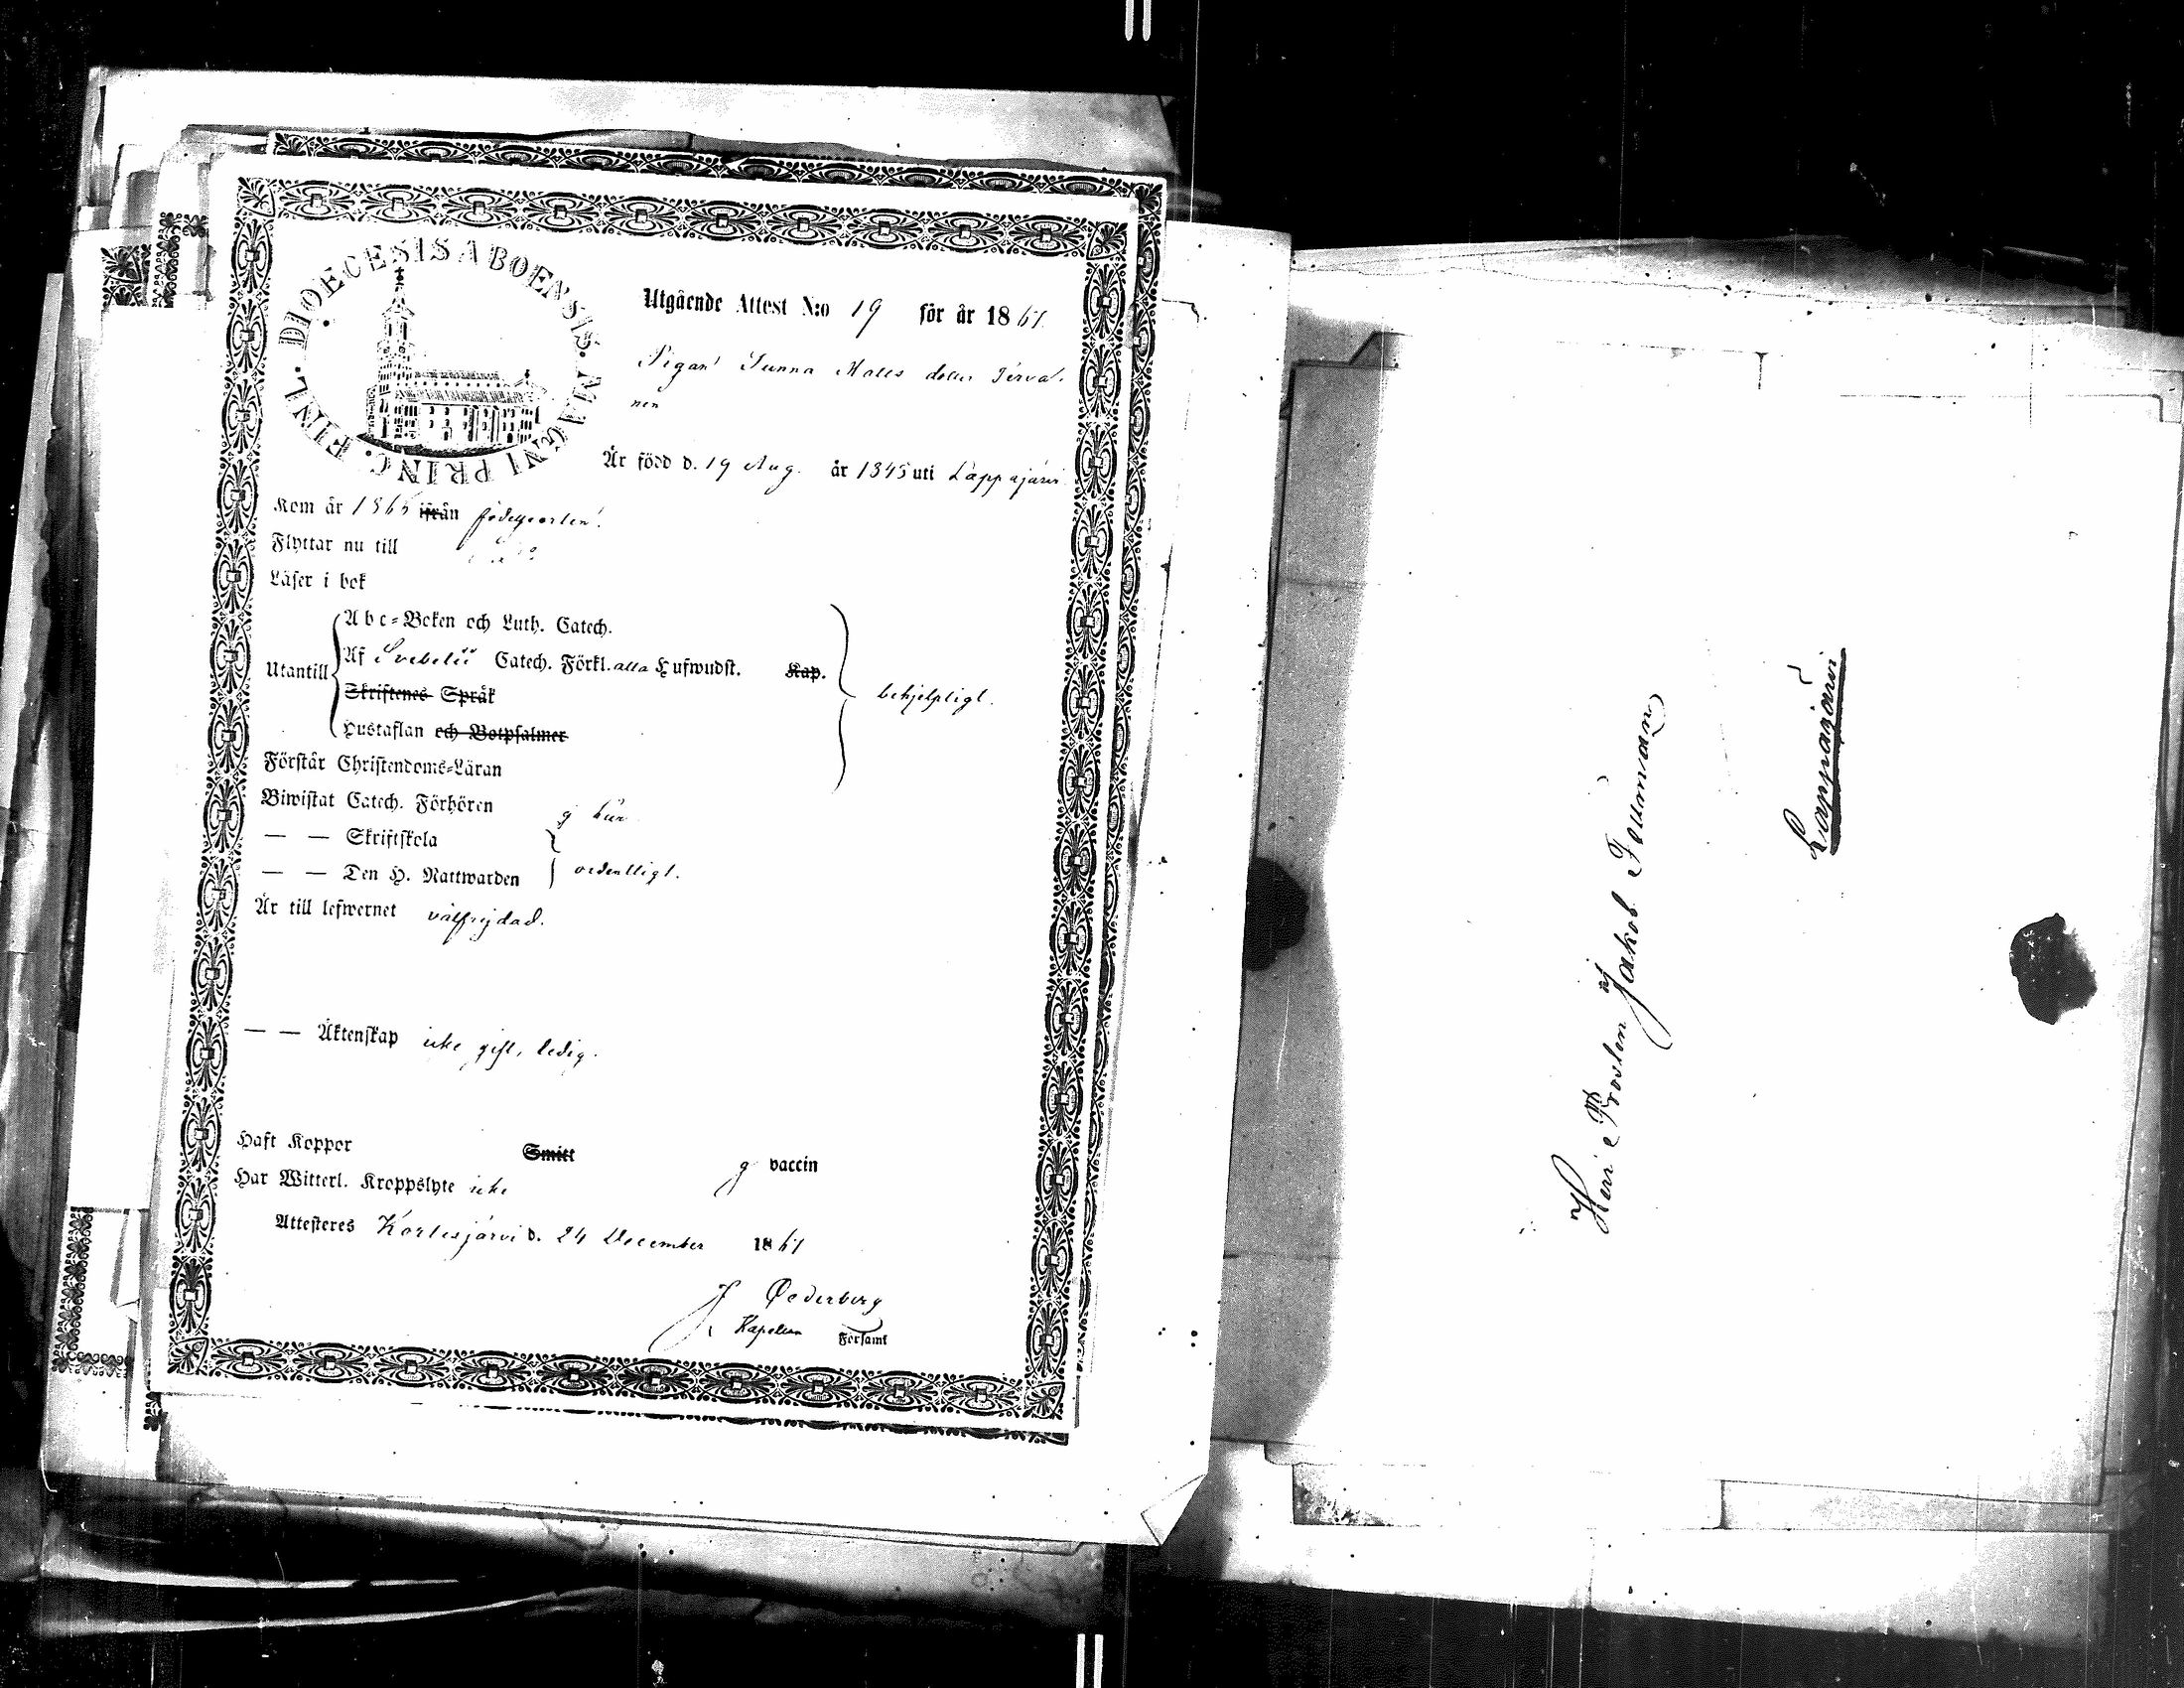 DIOECESIS ABOENSIS. MAGNI PRINC. FINL.
Utgående Attest N:o 19 för år 1867.
Pigan Sanna Matts dotter Terva-
nen
Är född d. 19 Aug. år 1845 uti Lappajärvi
Kom år 1865 ifrån födelseorten.
Flyttar nu till
Läser i bok
Utantill
Abc-Boken och Luth. Catech.
Af Svebelii Catech. Förkl. alla Hufwudst. Kap.
Skriftenes Språk
Hustaflan och Botpsalmer
behjelpligt.
Förstår Christendoms-Läran
Biwistat Catech. Förhören
— — Skriftskola
— — Den H. Nattwarden ordentligt.
Är till lefwernet välfrejdad.
— — Äktenskap icke gift, ledig.
Haft Koppor Smitt vaccin
Har Witterl. Kroppslyte icke
Attesteres Kortesjärvi d. 24 December 1867
J Cederberg
Kapellan Församl
Herr Prosten Jakob Fellman
Lappajärvi